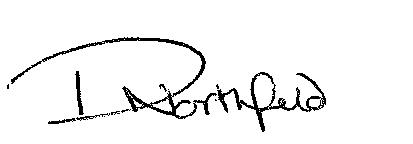 D Northfield